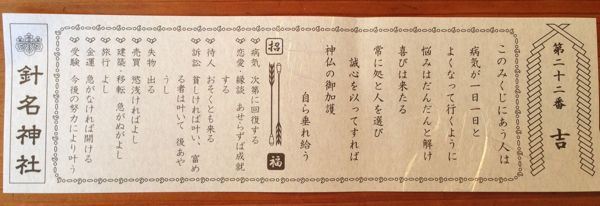 第二十二番 吉
このみくじにあう人は
病気が一日一日と
よくなって行くように
悩みはだんだんと解け
喜びは来たる
常に処と人を選び
誠心を以ってすれば
神仏の御加護
自ら垂れ給う
招 福
病気 次第に回復する
恋愛 縁談 あせらずば成就
する
待人 おそくとも来る
訴訟 貧しければ叶い、富め
る者は叶いて 後あや
うし
失物 出る
売買 慾浅ければよし
建築、移転 急がぬがよし
旅行 よし
金運 急がなければ開ける
受験 今後の努力により叶う
針名神社